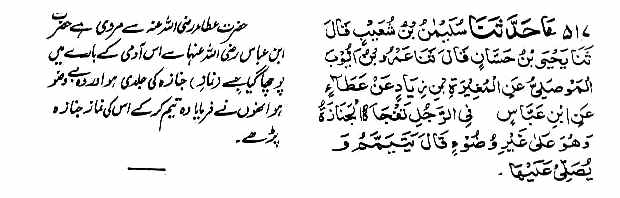 ۵۱۷ عَا حَدَّثَنَا سُلَيْمٰنُ بْنُ شُعَيْبٍ قَالَ
ثَنَا يَحْيَى بْنُ حَسَّانٍ قَالَ ثَنَا عَمْرُو بْنُ أَيُّوْبَ
الْمَوْصِلِيُّ عَنِ الْمُغِيْرَةِ بْنِ زِيَادٍ عَنْ عَطَاءٍ
عَنِ ابْنِ عَبَّاسٍ فِي الرَّجُلِ تَفْجَاُهُ الْجَنَازَةُ
وَهُوَ عَلٰى غَيْرِ وُضُوْءٍ قَالَ يَتَيَمَّمُ وَ
يُصَلِّيْ عَلَيْهَا۔
حضرت عطاء رضی اللہ عنہ سے مروی ہے حضرت
ابن عباس رضی اللہ عنہا سے اس آدمی کے بارے میں
پوچھا گیا جسے (نماز) جنازہ کی جلدی ہو اور وہ بے وضو
ہو انھوں نے فرمایا وہ تیمم کرکے اس کی نماز جنازہ
پڑھے۔